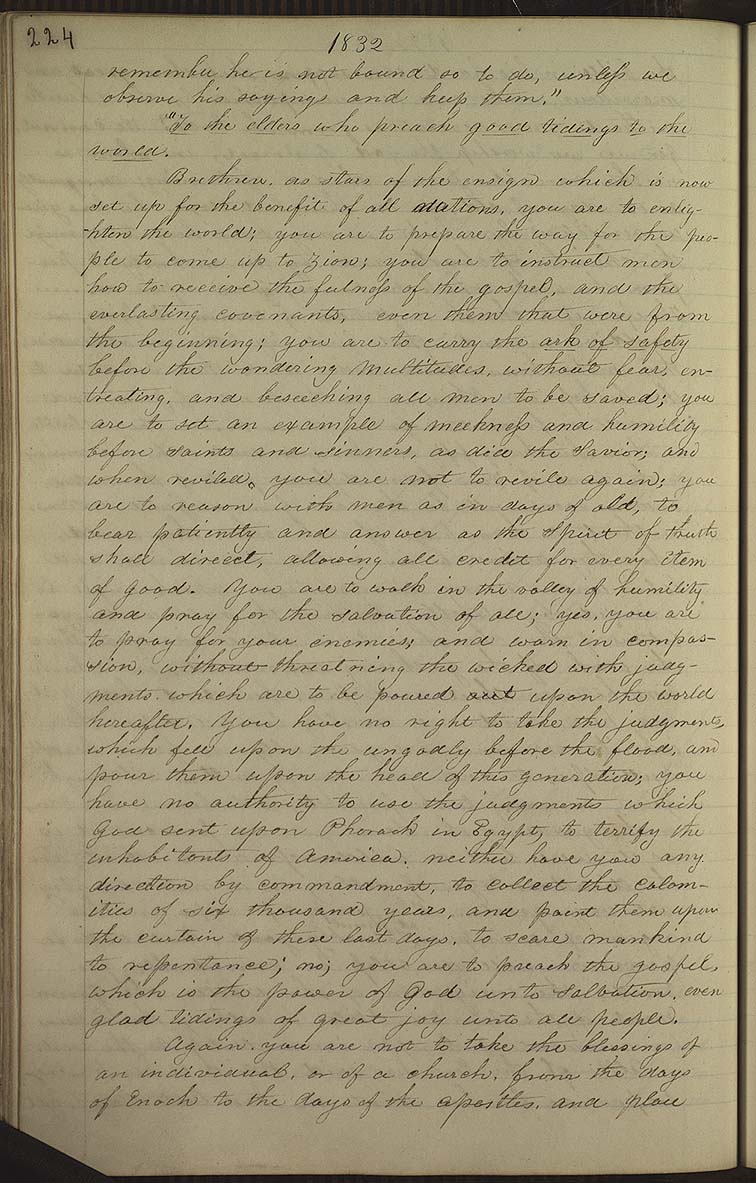 224
1832
remember he is not bound so to do, unless we
observe his sayings and keep them."
"To the elders who preach good tidings to the
world.
Brethren. as stars of the ensign which is now
set up for the benefit of all nations, you are to enlig-
-hten the world; you are to prepare the way for the peo-
ple to come up to Zion; you are to instruct men
how to receive the fulness of the gospel, and the
everlasting covenants, even them that were from
the beginning; you are to carry the ark of safety
before the wondering multitudes, without fear, en-
treating, and beseeching all men to be saved; you
are to set an example of meekness and humility
before saints and sinners, as did the Savior; and
when reviled, you are not to revile again; you
are to reason with men as in days of old, to
bear patiently and answer as the Spirit of truth
shall direct, allowing all credit for every item
of good. You are to walk in the valley of humility
and pray for the salvation of all; yes, you are
to pray for your enemies; and warn in compas-
sion, without threatning the wicked with judg-
ments which are to be poured out upon the world
hereafter. You have no right to take the judgments,
which fell upon the ungodly before the flood, and
pour them upon the head of this generation; you
have no authority to use the judgments which
God sent upon Pharaoh in Egypt, to terrify the
inhabitants of America. neither have you any
direction by commandment, to collect the calam-
ities of six thousand years, and paint them upon
the curtain of these last days, to scare mankind
to repentance; no; you are to preach the gospel,
which is the power of God unto salvation, even
glad tidings of great joy unto all people.
Again. you are not to take the blessings of
an individual, or of a church, from the days
of Enoch to the days of the apostles, and place